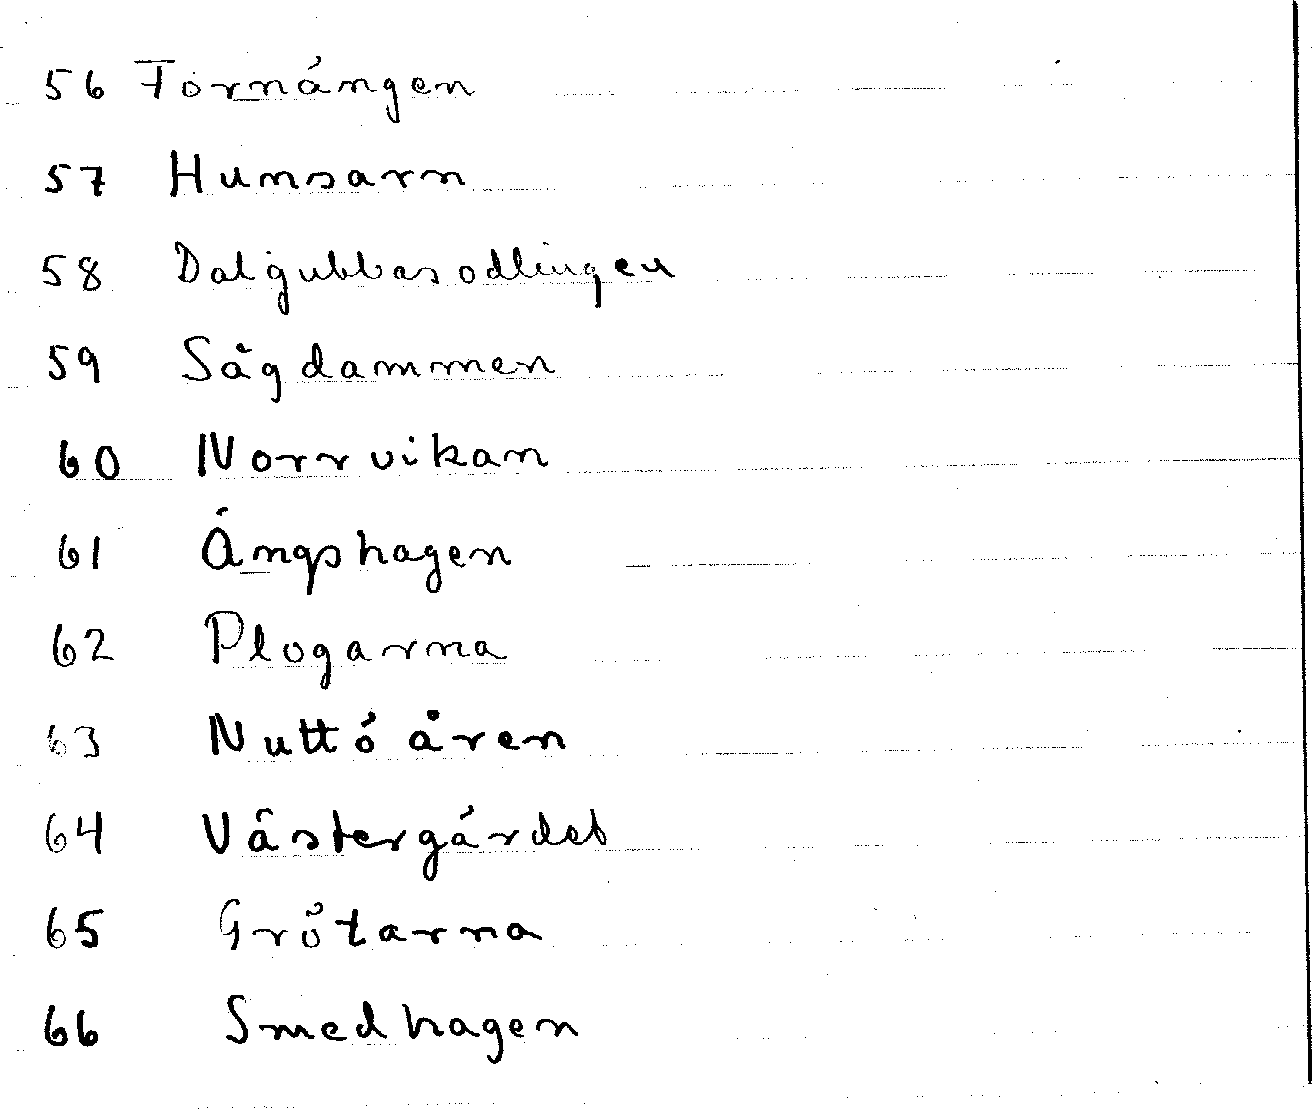 56 Fornängen
57 Humsarn
58 Dalgubbasodlingen
59 Sågdammen
60 Norrvikan
61 Ängshagen
62 Plogarna
63 Nuttö åren
64 Västergärdet
65 Grötarna
66 Smedhagen